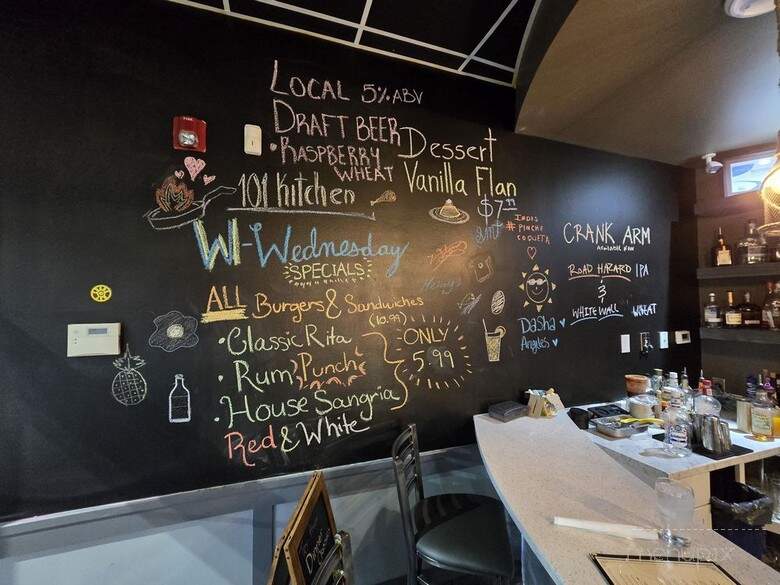 LOCAL 5% ABV
DRAFT BEER
• RASPBERRY
WHEAT
Dessert
Vanilla Flan
$7.99
101 Kitchen
INDIS
# PINCHE
COQUETA
W-Wednesday
SPECIALS
ALL Burgers & Sandwiches
(10.99)
• Classic Rita
• Rum Punch
• House Sangria
Red & White
ONLY
5.99
Dasha
Angeles
CRANK ARM
AVAILABLE NOW
ROAD HAZARD IPA
&
WHITE WALL WHEAT
menupix